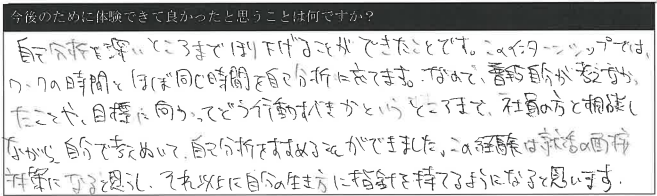 今後のために体験できて良かったと思うことは何ですか？
自己分析を深いところまでほり下げることができたことです。このインターンシップでは、
ワークの時間とほぼ同じ時間を自己分析に充てます。なので、普段自分が考えなかっ
たことや、目標に向かってどう行動すべきかというところまで、社員の方と相談し
ながら、自分で考えぬいて、自己分析をすすめることができました。この経験は就活の面接
対策になると思うし、それ以上に自分の生き方に指針を持てるようになると思います。